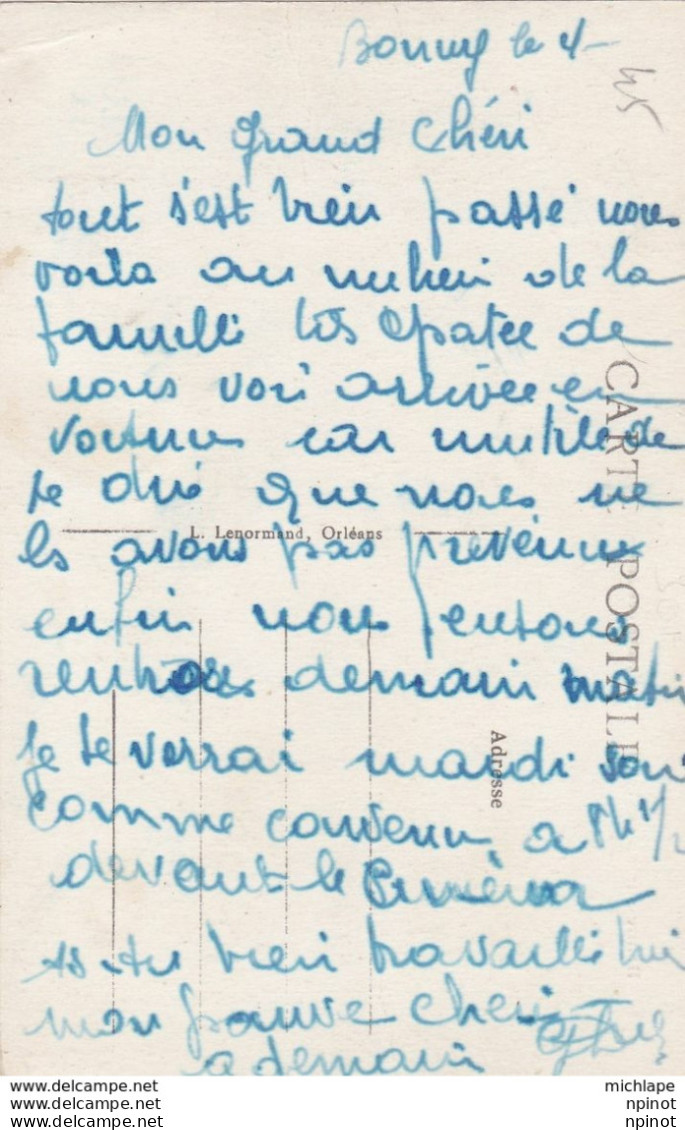 Bonny le 4-
45
Mon grand chéri
tout s'est bien passé nous
voila au milieu de la
famille très épatée de
nous voir arrivée en
voiture car inutile de
te dire que nous ne
L. Lenormand, Orléans
les avons pas prévenus
enfin nous pensons
rentrer demain matin
je te verrai mardi soir
comme convenu a 8h 1/2
devant le cinéma
as-tu bien travaillé
mon pauvre cheri
a demain
CARTE POSTALE
Adresse
michlape
npinot
npinot